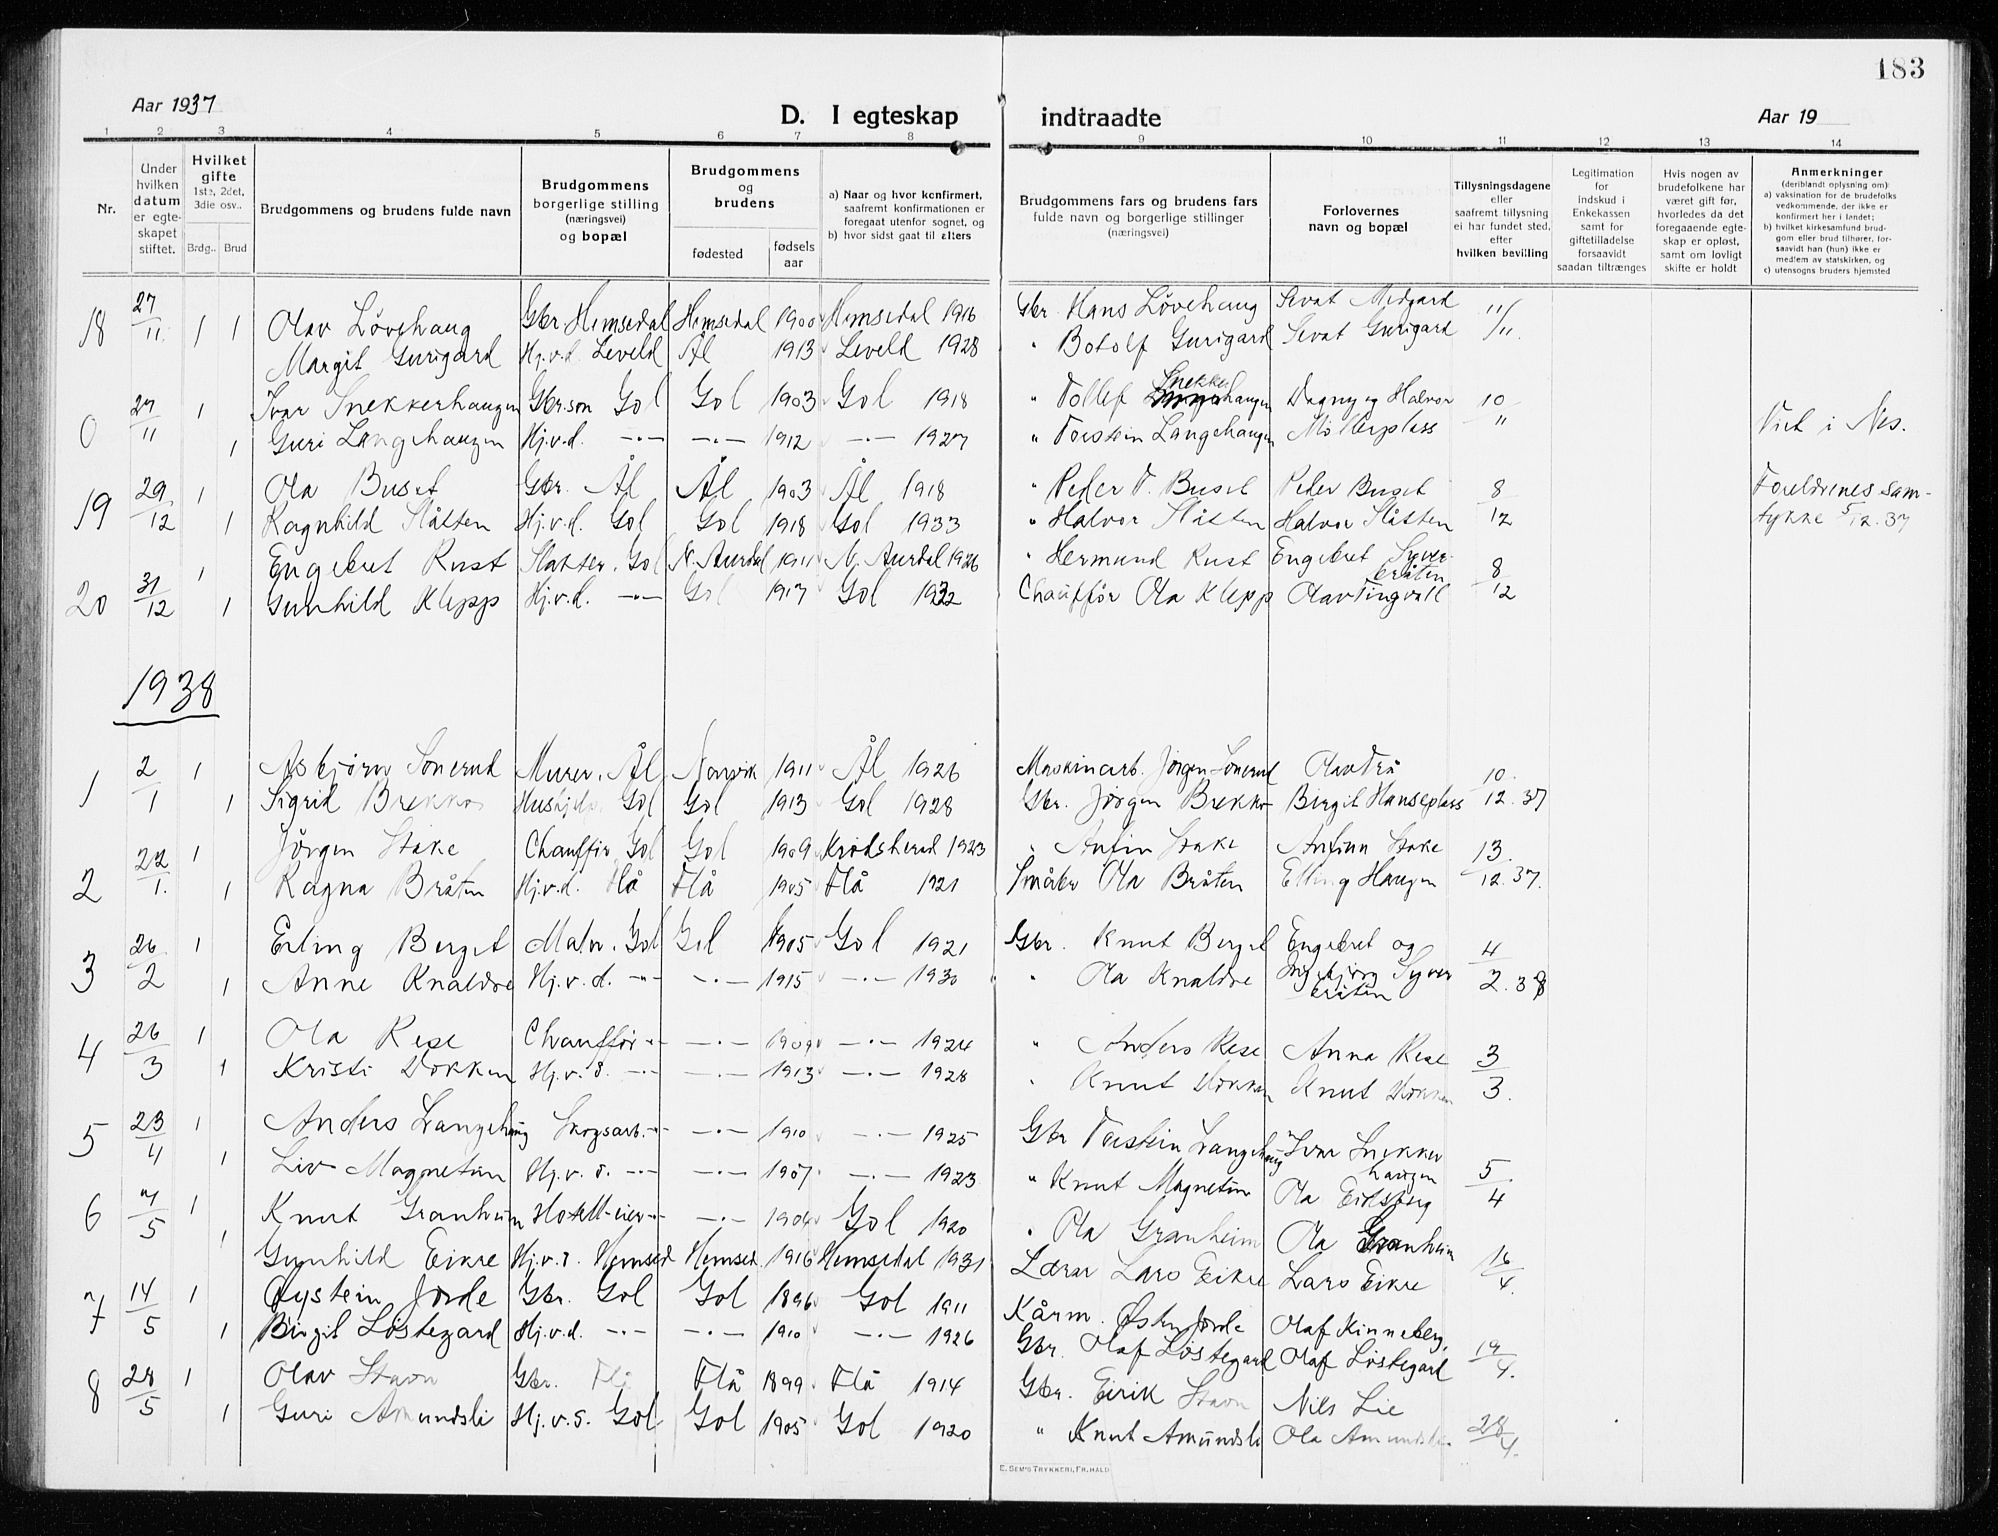 183
Aar 1937
D. I egteskap indtraadte
Aar 19
1 2 3 4 5 6 7 8 9 10 11 12 13 14
Nr.
Under hvilken datum er egte-skapet stiftet.
Hvilket gifte 1ste, 2det, 3die osv..
Brdg.. Brud
Brudgommens og brudens fulde navn
Brudgommens borgerlige stilling (næringsvei) og bopæl
Brudgommens og brudens
fødested
fødsels aar
a) Naar og hvor konfirmert, saafremt konfirmationen er foregaat utenfor sognet, og
b) hvor sidst gaat til alters
Brudgommens fars og brudens fars fulde navn og borgerlige stillinger (næringsvei)
Forlovernes navn og bopæl
Tillysningsdagene eller saafremt tillysning ei har fundet sted, efter hvilken bevilling
Legitimation for indskud i Enkekassen samt for giftetilladelse forsaavidt saadan tiltrænges
Hvis nogen av brudefolkene har været gift før, hvorledes da det foregaaende egte-skap er opløst, samt om lovligt skifte er holdt
Anmerkninger (deriblandt oplysning om): a) vaksination for de brudefolks vedkommende, der ikke er konfirmert her i landet; b) hvilket kirkesamfund brud-gom eller brud tilhører, for-saavidt han (hun) ikke er medlem av statskirken, og c) utensogns bruders hjemsted
18 27/11. 1 1 Olav Løvehaug Gbr Hemsedal Hemsedal 1900 Hemsedal 1916 Gbr. Hans Løvehaug Sevat Medgard 11/11.
Margit Gurigard Hj.v.d. Leveld Ål 1913 Leveld 1928 " Botolf Gurigard Sevat Gurigard
0 27/11 1 Ivar Snekkerhaugen Gbr.søn Gol Gol 1903 Gol 1918 " Tollef Snekkerhaugen Dagny og Halvor 10/11
1 Guri Langehaugen Hj.v.d. -"- -"- 1912 -"- 1927 " Torstein Langehaugen Møllerplass Viet i Nes.
19 29/12 1 Ola Buset Gbr. Ål Ål 1903 Ål 1918 " Peder T. Buset Peder Buset 8/12 Foreldrenes sam-
1 Ragnhild Slåtten Hj.v.d. Gol Gol 1918 Gol 1933 " Halvor Slåtten Halvor Slåtten tykke 5/12.37
20 31/12 1 Engebret Rust Slakter, Gol N. Aurdal 1911 N. Aurdal 1926 " Hermund Rust Engebret Syver-bråten 8/12
1 Gunhild Klepp Hj.v.d. -"- Gol 1917 Gol 1932 Chauffør Ola Klepp Olav Tingvoll
1938
1 2/1 1 Asbjørn Sønerud Murer, Ål Narvik 1911 Ål 1926 Maskinarb. Jørgen Sønerud Olav Trå 10/12.37
1 Sigrid Brekko Hushjelp Gol Gol 1913 Gol 1928 Gbr. Jørgen Brekko Birgit Hanseplass
2 22/1. 1 Jørgen Stake Chauffør, Gol Gol 1909 Krødsherad 1923 " Anfin Stake Anfinn Stake 13/12.37.
1 Ragna Bråten Hj.v.d. Flå Flå 1905 Flå 1921 Småbr Ola Bråten Elling Haugen
3 26/2 1 Erling Berget Maler, Gol Gol 1905 Gol 1921 Gbr. Knut Berget Engebret og 4/2.38
1 Anne Knaldre Hj.v.d. -"- -"- 1915 -"- 1930 " Ola Knaldre Ingebjørg Syver bråten
4 26/3 1 Ola Rese Chauffør -"- -"- 1909 -"- 1924 " Anders Rese Anna Rese 3/3.
1 Kristi Dokken Hj.v.d. -"- -"- 1913 -"- 1928 " Knut Dokken Knut Dokken
5 23/4 1 Anders Langehaug Skogsarb. -"- -"- 1910 -"- 1925 Gbr Torstein Langehaug Ivar Snekker haugen 5/4
1 Liv Magnetun Hj.v.d. -"- -"- 1907 -"- 1923 " Knut Magnetun Ola Eidsberg
6 7/5 1 Knut Granheim Hotell-eier -"- -"- 1904 Gol 1920 " Ola Granheim Ola Granheim 16/4.
1 Gunhild Eikre Hj.v.d. Hemsed Hemsed. 1916 Hemsedal 1931 Lærer Lars Eikre Lars Eikre
7 14/5 1 Øystein Jorde Gbr. Gol Gol 1896 Gol 1911 Kårm. Østen Jorde Olaf Kinneberg 19/4.
1 Birgit Løstegard Hj.v.d. -"- -"- 1910 -"- 1926 Gbr. Olaf Løstegard Olaf Løstegard
8 28/5 1 Olav Stavn Gbr. Flå Flå 1899 Flå 1914 Gbr. Eirik Stavn Nils Lie 28/4.
1 Guri Amundsli Hj.v.d. Gol Gol 1905 Gol 1920 " Knut Amundsli Ola Amundsli
E. SEM'S TRYKKERI, FR.HALD